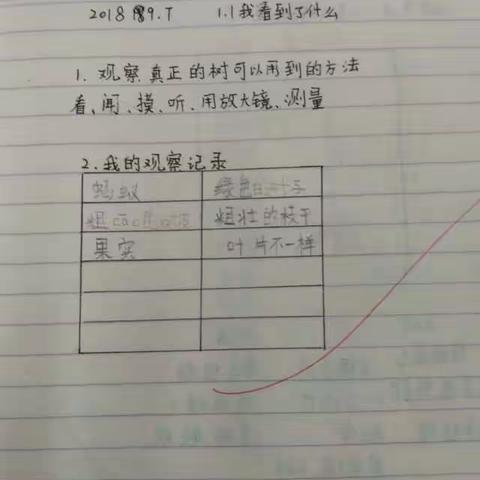 2018 9.7 1.1我看到了什么
1. 观察真正的树可以用到的方法
看、闻、摸、听、用放大镜、测量
2.我的观察记录
蚂蚁 绿色的叶子
粗 粗壮的枝干
果实 叶片不一样